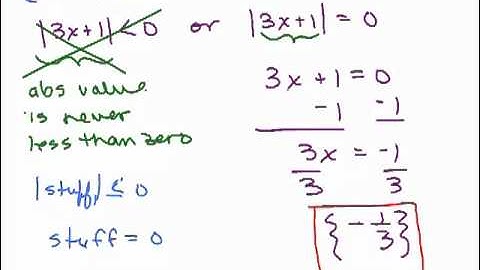 |3x+1| < 0 or |3x+1| = 0
abs value
is never
less than zero
3x + 1 = 0
-1 -1
3x = -1
3 3
{-1/3}
|stuff| ≤ 0
stuff = 0